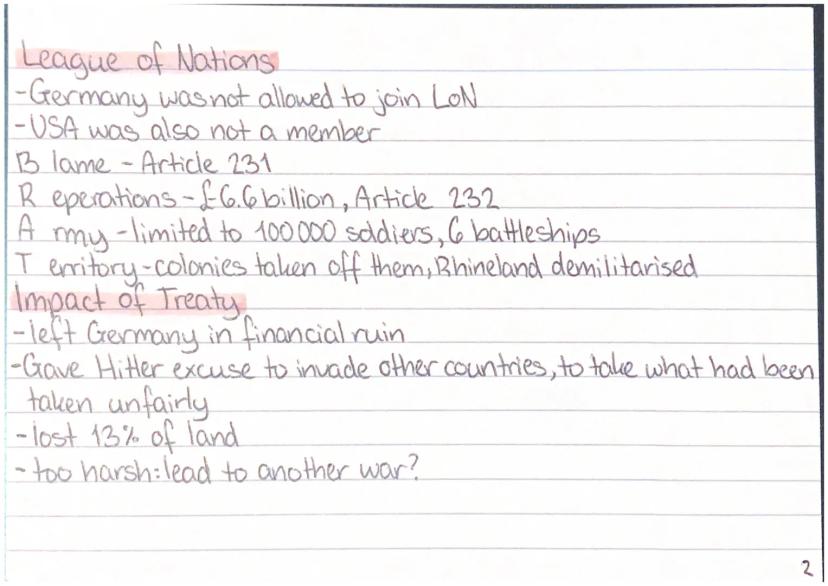 League of Nations
-Germany was not allowed to join LoN
-USA was also not a member
B lame - Article 231
R eperations - £6.6 billion, Article 232
A rmy - limited to 100 000 soldiers, 6 battleships
T erritory - colonies taken off them, Rhineland demilitarised
Impact of Treaty
- left Germany in financial ruin
-Gave Hitler excuse to invade other countries, to take what had been
taken unfairly
- lost 13% of land
- too harsh: lead to another war?
2